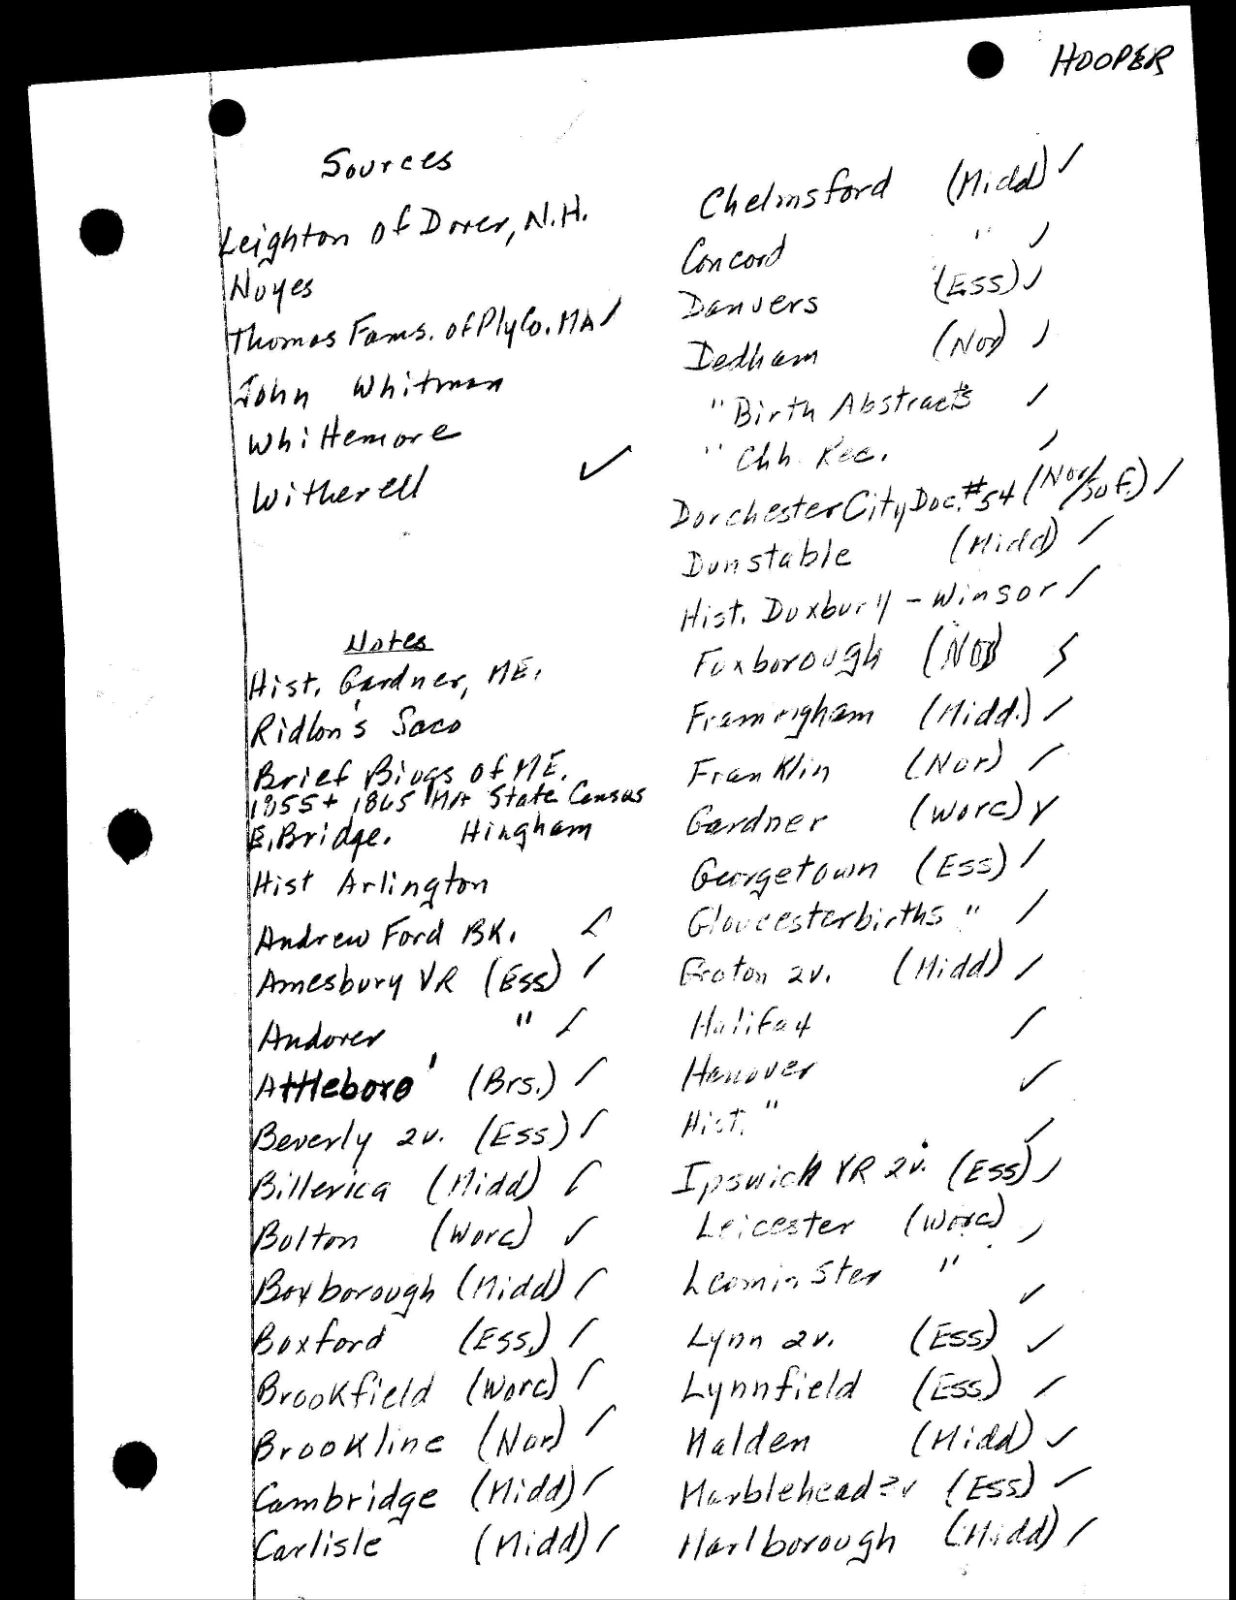 HOOPER
Sources
Leighton of Dover, N.H.
Noyes
Thomas Fams. of Ply Co. MA ✓
John Whitman
Whittemore
Witherell ✓
Notes
Hist. Gardner, ME.
Ridlon's Saco
Brief Biogs of ME.
1855 + 1865 MA State Census
E. Bridge. Hingham
Hist Arlington
Andrew Ford BK. ✓
Amesbury VR (Ess) ✓
Andover " ✓
Attleboro' (Brs.) ✓
Beverly 2v. (Ess) ✓
Billerica (Midd) ✓
Bolton (Worc) ✓
Boxborough (Midd) ✓
Boxford (Ess.) ✓
Brookfield (Worc) ✓
Brookline (Nor) ✓
Cambridge (Midd) ✓
Carlisle (Midd) ✓
Chelmsford (Midd) ✓
Concord " ✓
Danvers (Ess) ✓
Dedham (Nor) ✓
" Birth Abstracts ✓
" Chh. Rec. ✓
Dorchester City Doc. #54 (Nor/Suf.) ✓
Dunstable (Midd) ✓
Hist. Duxbury - Winsor ✓
Foxborough (Nor) ✓
Framingham (Midd.) ✓
Franklin (Nor) ✓
Gardner (Worc) ✓
Georgetown (Ess) ✓
Gloucester births " ✓
Groton 2v. (Midd) ✓
Halifax ✓
Hanover ✓
Hist. " ✓
Ipswich VR 2v. (Ess) ✓
Leicester (Worc) ✓
Leominster " ✓
Lynn 2v. (Ess) ✓
Lynnfield (Ess) ✓
Malden (Midd) ✓
Marblehead 2v (Ess) ✓
Marlborough (Midd) ✓